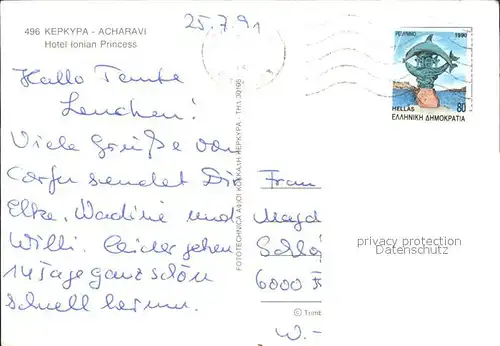 25.7.91
496 ΚΕΡΚΥΡΑ - ACHARAVI
Hotel Ionian Princess
Hallo Tante
Lenchen!
Viele Grüße von
Corfu sendet Dir
Elke, Nadine und
Willi. Leider gehen
14 Tage ganz schön
schnell herum.
Frau
Magd
Schlö
6000 F
W.-
ΡΕΘΥΜΝΟ 1990
HELLAS 80
ΕΛΛΗΝΙΚΗ ΔΗΜΟΚΡΑΤΙΑ
privacy protection
Datenschutz
© Tomb